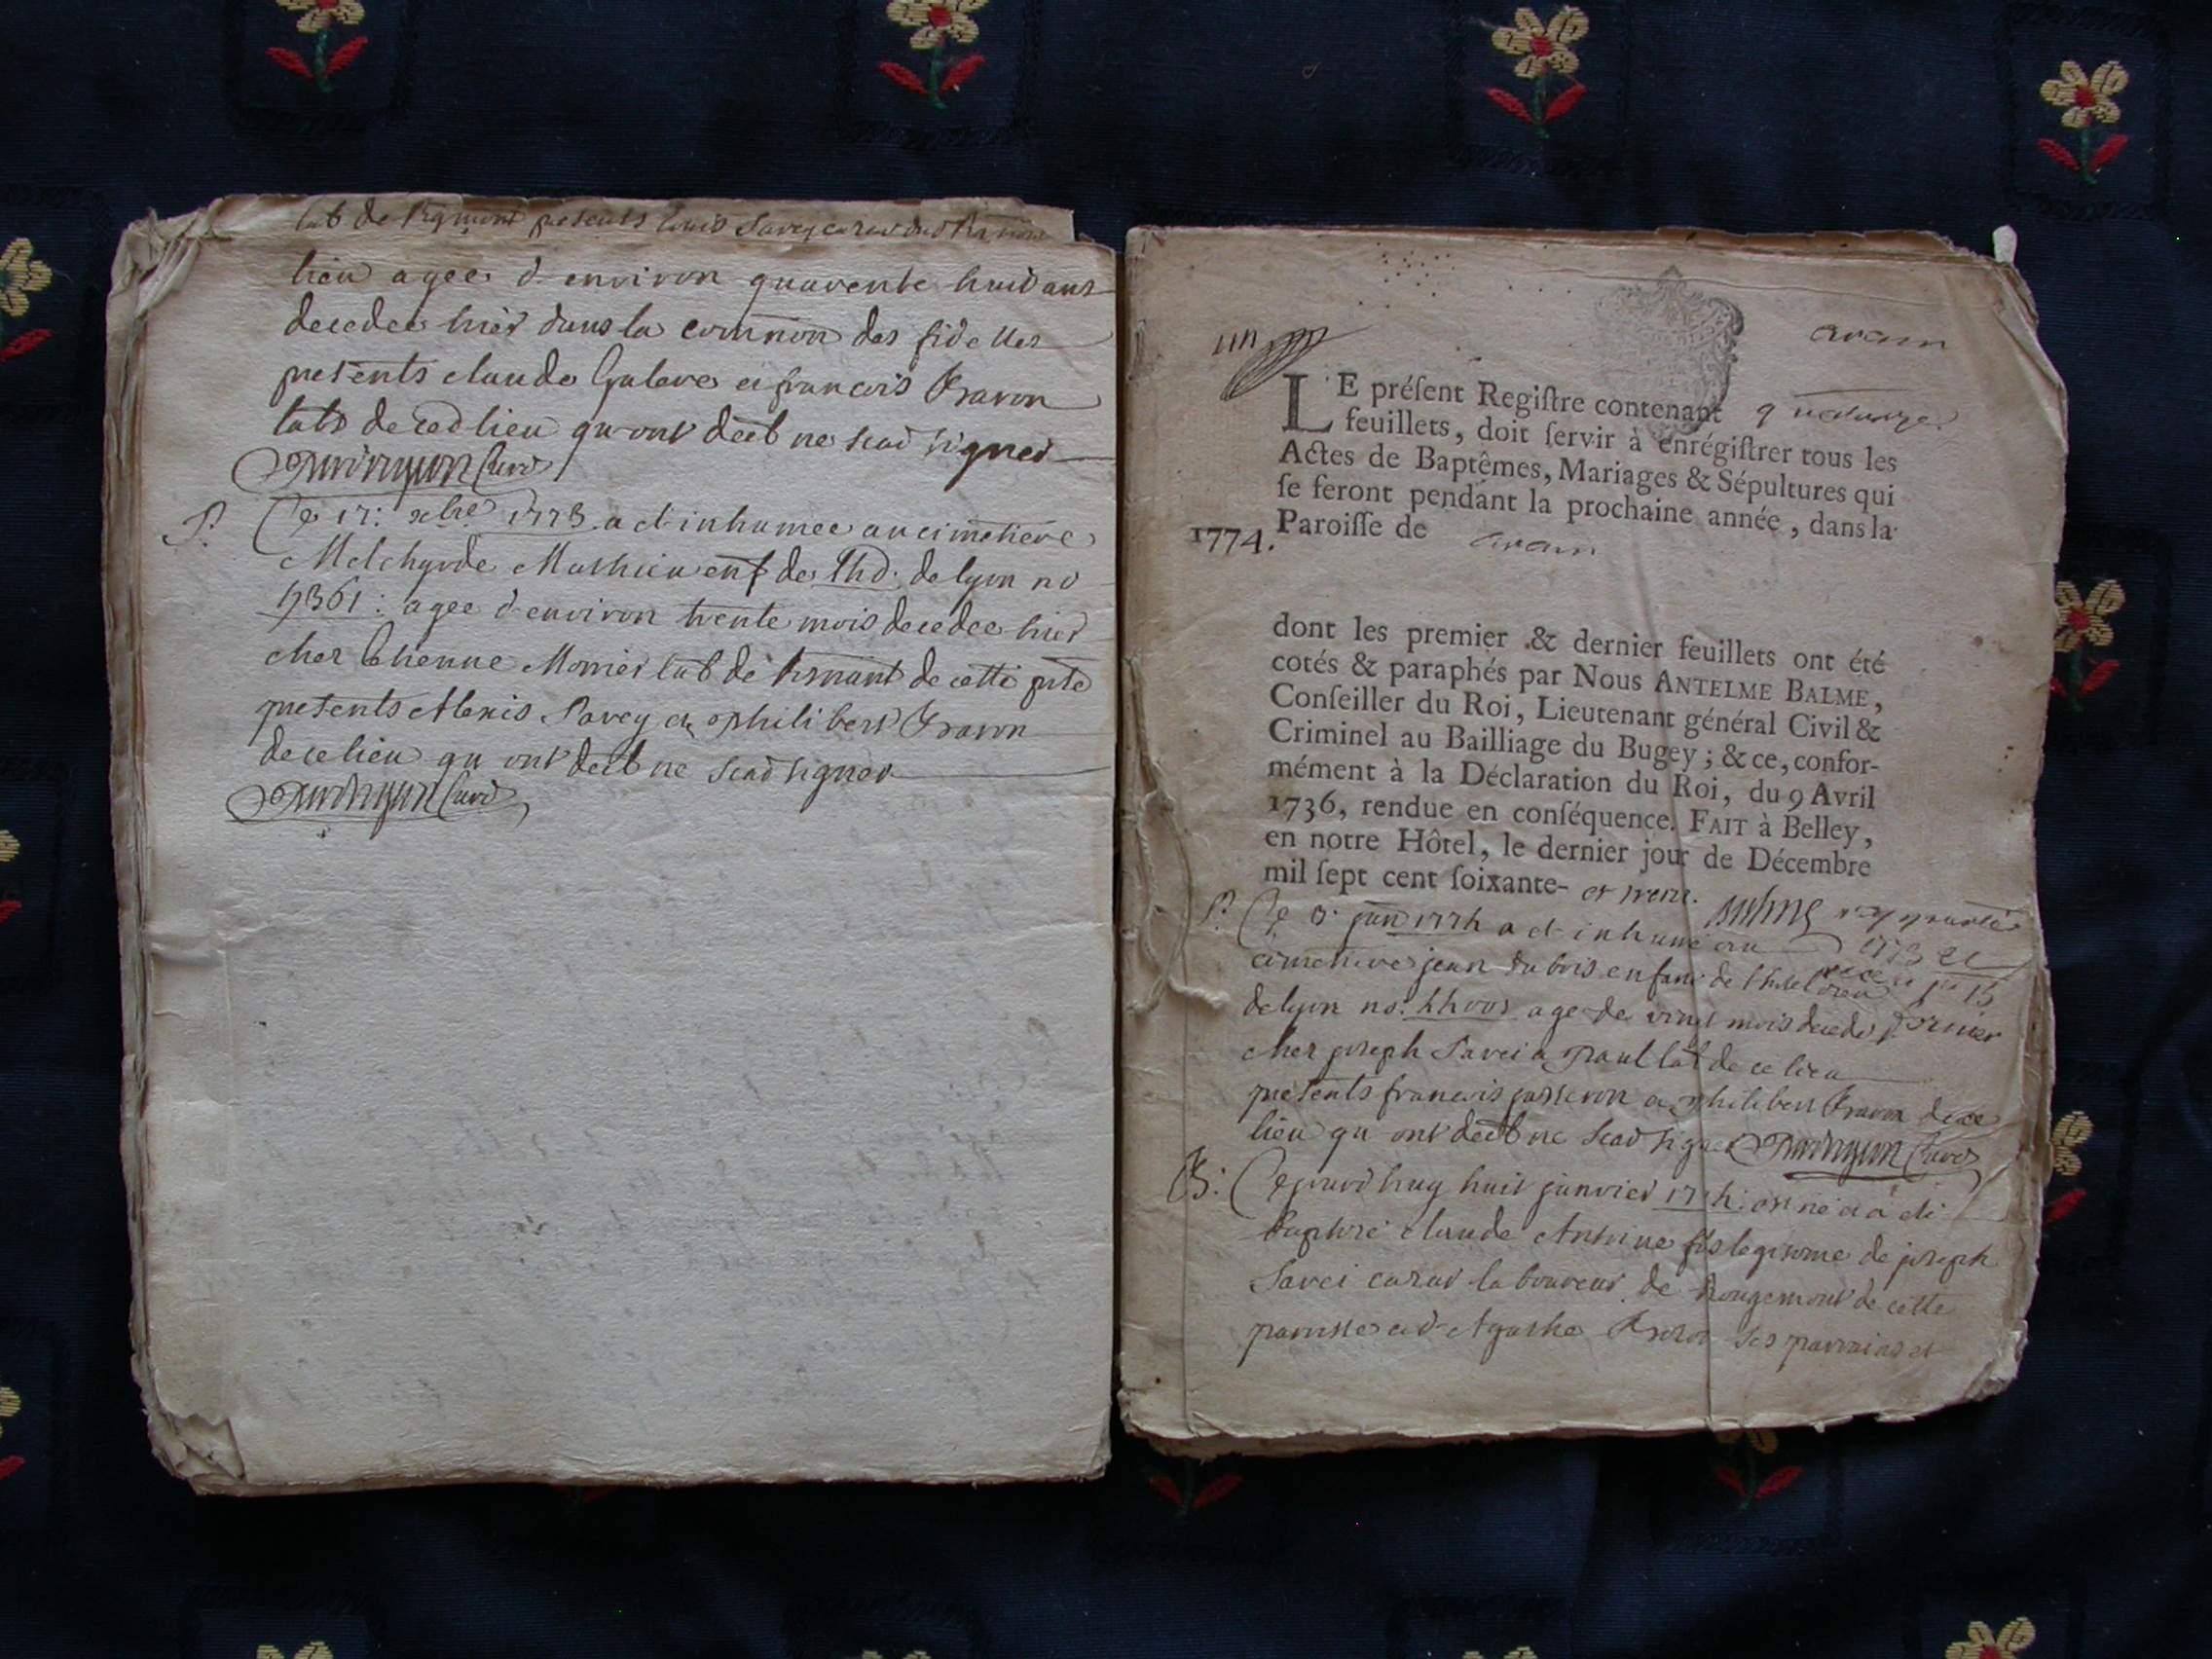 lab de presents Louis Savey
lieu agée d'environ quarente huid ans
decedee hier dans la comnion des fidelles
presents claude Galere et francois Travon
labs de ced lieu qu ont declt ne scad signer
curé
S. Ce 17: xbre 1773 a et inhumee au cimetiere
Melchyorde Mathieu enf de lhd. de lyon no
7361: agee d'environ trente mois decedee hier
cher Etienne Monier lab de de cette psse
presents Alexis Savey et philibert Travon
de ce lieu qu ont declt ne scad signer
curé
aram
LE préſent Regiſtre contenant quatorze
feuillets, doit ſervir à enrégiſtrer tous les
Actes de Baptêmes, Mariages & Sépultures qui
ſe feront pendant la prochaine année, dans la
1774. Paroiſſe de aram
dont les premier & dernier feuillets ont été
cotés & paraphés par Nous ANTELME BALME,
Conſeiller du Roi, Lieutenant général Civil &
Criminel au Bailliage du Bugey; & ce, confor-
mément à la Déclaration du Roi, du 9 Avril
1736, rendue en conſéquence. FAIT à Belley,
en notre Hôtel, le dernier jour de Décembre
mil ſept cent ſoixante- et treize.
S. Ce janv 1774 a et inhumé au
cimetiere jean dubois enfant de l'hotel dieu
de lyon no. age de vingt mois decedé
cher joseph Savei a paul lab de ce lieu
presents francois passeron et philibert Travon de ce
lieu qu ont declt ne scad signer curé
B: Cejourdhuy huit janvier 1774: est né et a eté
baptisé claude Antoine fils legitime de joseph
Savei laboureur de Rougemont de cette
paroisse et d'Agathe ses parrains et